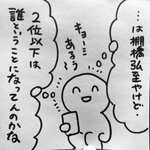 …は棚橋弘至やけど…
キョーミ
あるぅ〜
２位以下は
誰ということになってんのかな